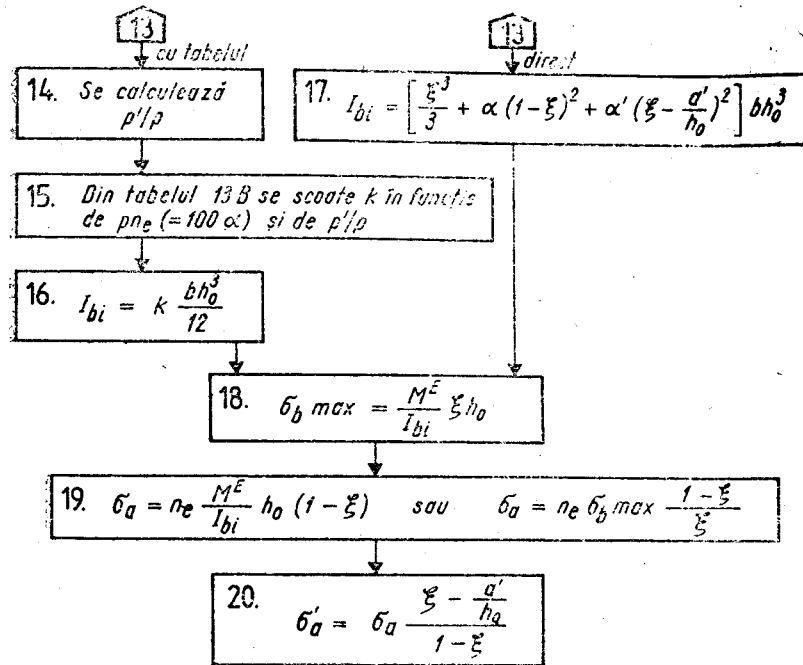 13
cu tabelul
14. Se calculează
p'/p
15. Din tabelul 13 B se scoate k în funcție
de pnₑ (=100 α) și de p'/p
16. I_bi = k bh₀³/12
13
direct
17. I_bi = [ξ³/3 + α (1-ξ)² + α' (ξ - a'/h₀)²] bh₀³
18. σ_b max = M^E/I_bi ξ h₀
19. σ_a = nₑ M^E/I_bi h₀ (1 - ξ) sau σ_a = nₑ σ_b max (1-ξ)/ξ
20. σ'_a = σ_a (ξ - a'/h₀)/(1-ξ)